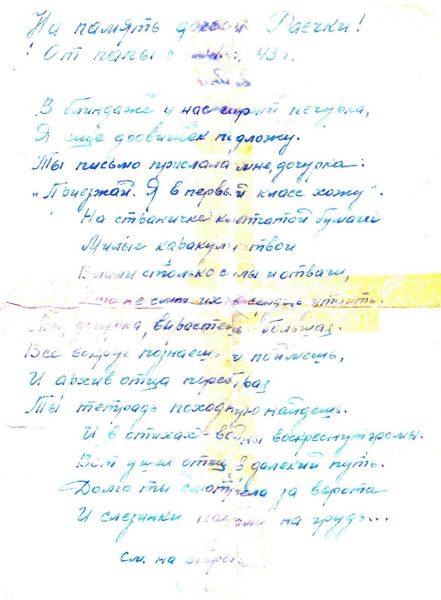 На память доч Раечки!
От папы в 43 г.
В блиндаже у нас горит печурка,
Я ещё дровишек подложу.
Ты письмо прислала мне, дочурка:
„Приезжай. Я в первый класс хожу“.
На страничке клетчатой бумаги
Милые каракули твои
Влили столько силы и отваги,
не
Ты, дочурка, вырастешь большая.
Всё вокруг познаешь и поймешь,
И архив отца перебирая
Ты тетрадь походную найдешь.
И в стихах - войны воскреснут громы.
Вот ушел отец в далекий путь.
Долго ты смотрела за ворота
И слезинки падали на грудь...
см. на обороте